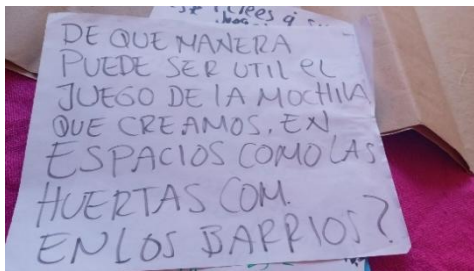 DE QUE MANERA
PUEDE SER UTIL el
JUEGO DE lA MOCHILA
QUE CREAMOS, EN
ESPACIOS COMO LAS
HUERTAS COM.
EN LOS BARRIOS?